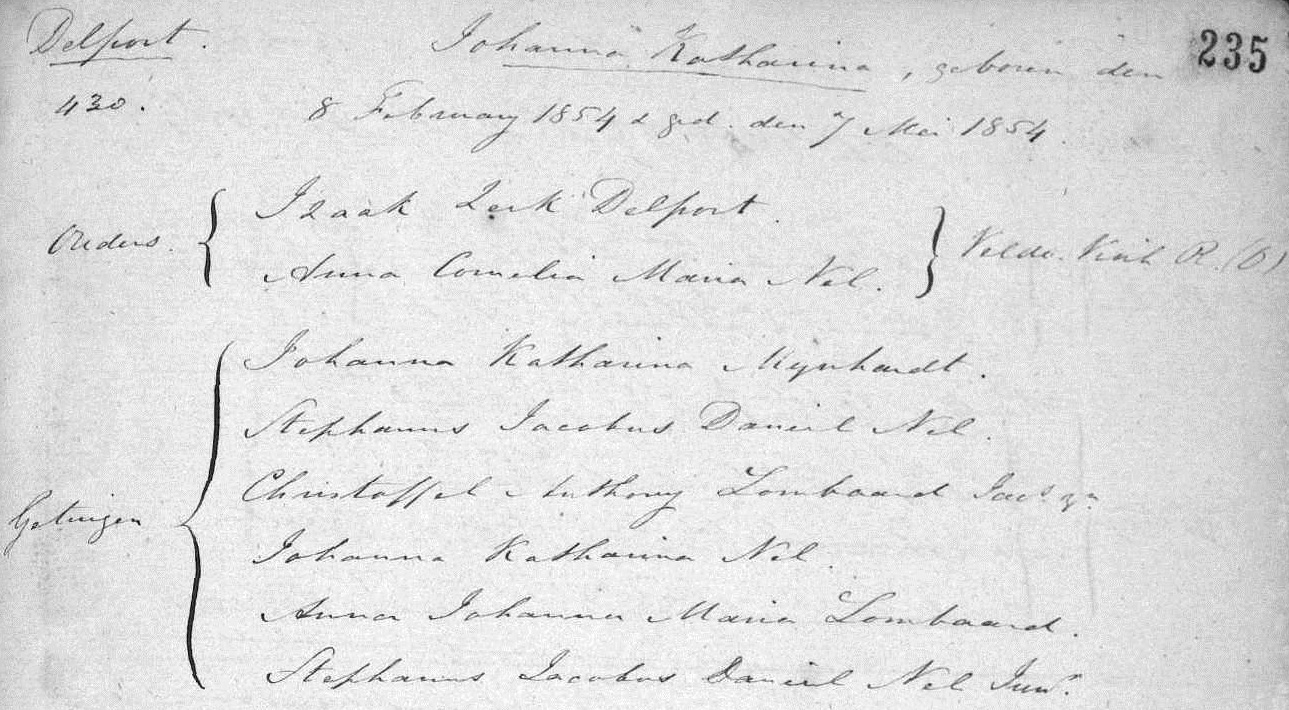 Delport.
Johanna Katharina, geboren den
235
430.
8 February 1854 & ged. den 7 Mei 1854.
Izaak Zerk Delport.
Ouders.
Anna Cornelia Maria Nel.
Johanna Katharina Mijnhardt.
Stephanus Jacobus Daniel Nel.
Christoffel Anthony Lombaard Jacs zn
Getuigen
Johanna Katharina Nel.
Anna Johanna Maria Lombaard.
Stephanus Jacobus Daniel Nel Junr.